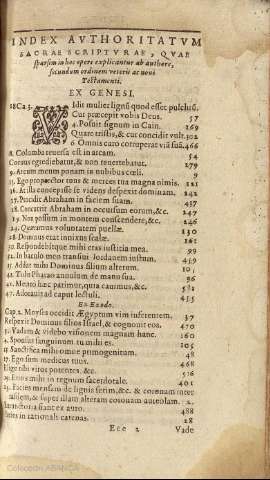 INDEX AVTHORITATVM
SACRAE SCRIPTVRAE, QVAE
sparsim in hoc opere explicantur ab authore,
secundum ordinem veteris ac noui
Testamenti.
EX GENESI.
Ca 3. VIdit mulier lignū quod esset pulchrū.
Cur præcepit vobis Deus. 57
4. Posuit signum in Cain. 169
Quare tristis, & cur concidit vult. 302
6. Omnis caro corruperat viā suā. 466
8. Columba reuersa est in arcam. 54
Coruus egrediebatur, & non reuertebatur. 279
9. Arcum meum ponam in nubibus cœli.
15. Ego protector tuus & merces tua magna nimis. 221
16. At illa concepisse se videns despexit dominam. 242
17. Procidit Abraham in faciem suam. 437
18. Cucurrit Abraham in occursum eorum, &c. 247
19. Non possum in montem conscendere, &c. 246
24. Quæramus voluntatem puellæ. 130
28. Dominus erat innixus scalæ. 161
30. Respondebitque mihi cras iustitia mea. 99
32. In baculo meo transiui Jordanem istum. 459
35. Addat mihi Dominus filium alterum. 105
41. Tulit Pharao annulum de manu sua. 96
42. Merito hæc patimur, quia canimus, &c. 581
47. Adorauit ad caput lectuli. 435
Ex Exodo.
Cap. 2. Moyses occidit Ægyptum vim inferentem. 37
Respexit Dominus filios Israel, & cognouit eos. 470
3. Vadam & videbo visionem magnam hanc. 160
4. Sponsus sanguinum tu mihi es. 105
13. Sanctifica mihi omne primogenitum. 48
17. Ego sum medicus tuus.
Elige tibi viros potentes. &c.
19. Eritis mihi in regnum sacerdotale. 401
25. Facies mensam de lignis setim, &c. & coronam inter
rasilem, & super illam alteram coronam aureolam. 2.
auro. 488
in rationali catenas. 28
Ecc 2 Vade
Colección ABANCA